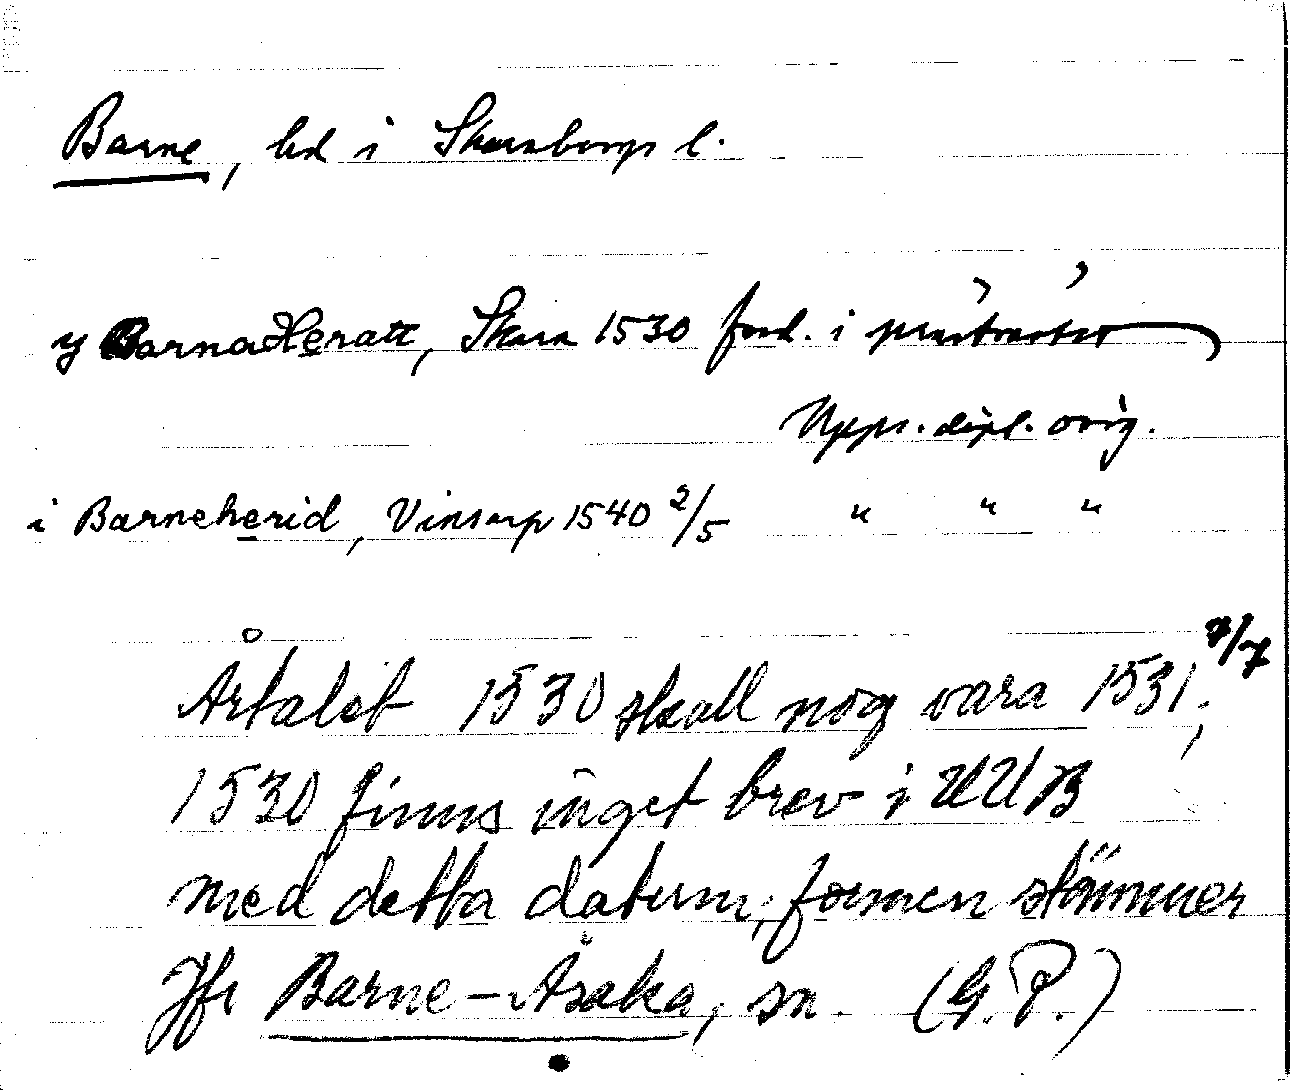 Barne, hd i Skaraborgs l.
y Barna Heratt, Skara 1530 fred. i
Upps. dipl. orig.
i Barneherid, Vinsarp 1540 2/5 " " "
Årtalet 1530 skall nog vara 1531 7/7;
1530 finns inget brev i UUB
med detta datum, formen stämmer
Jfr Barne-Åsaka, sn. (G.P.)